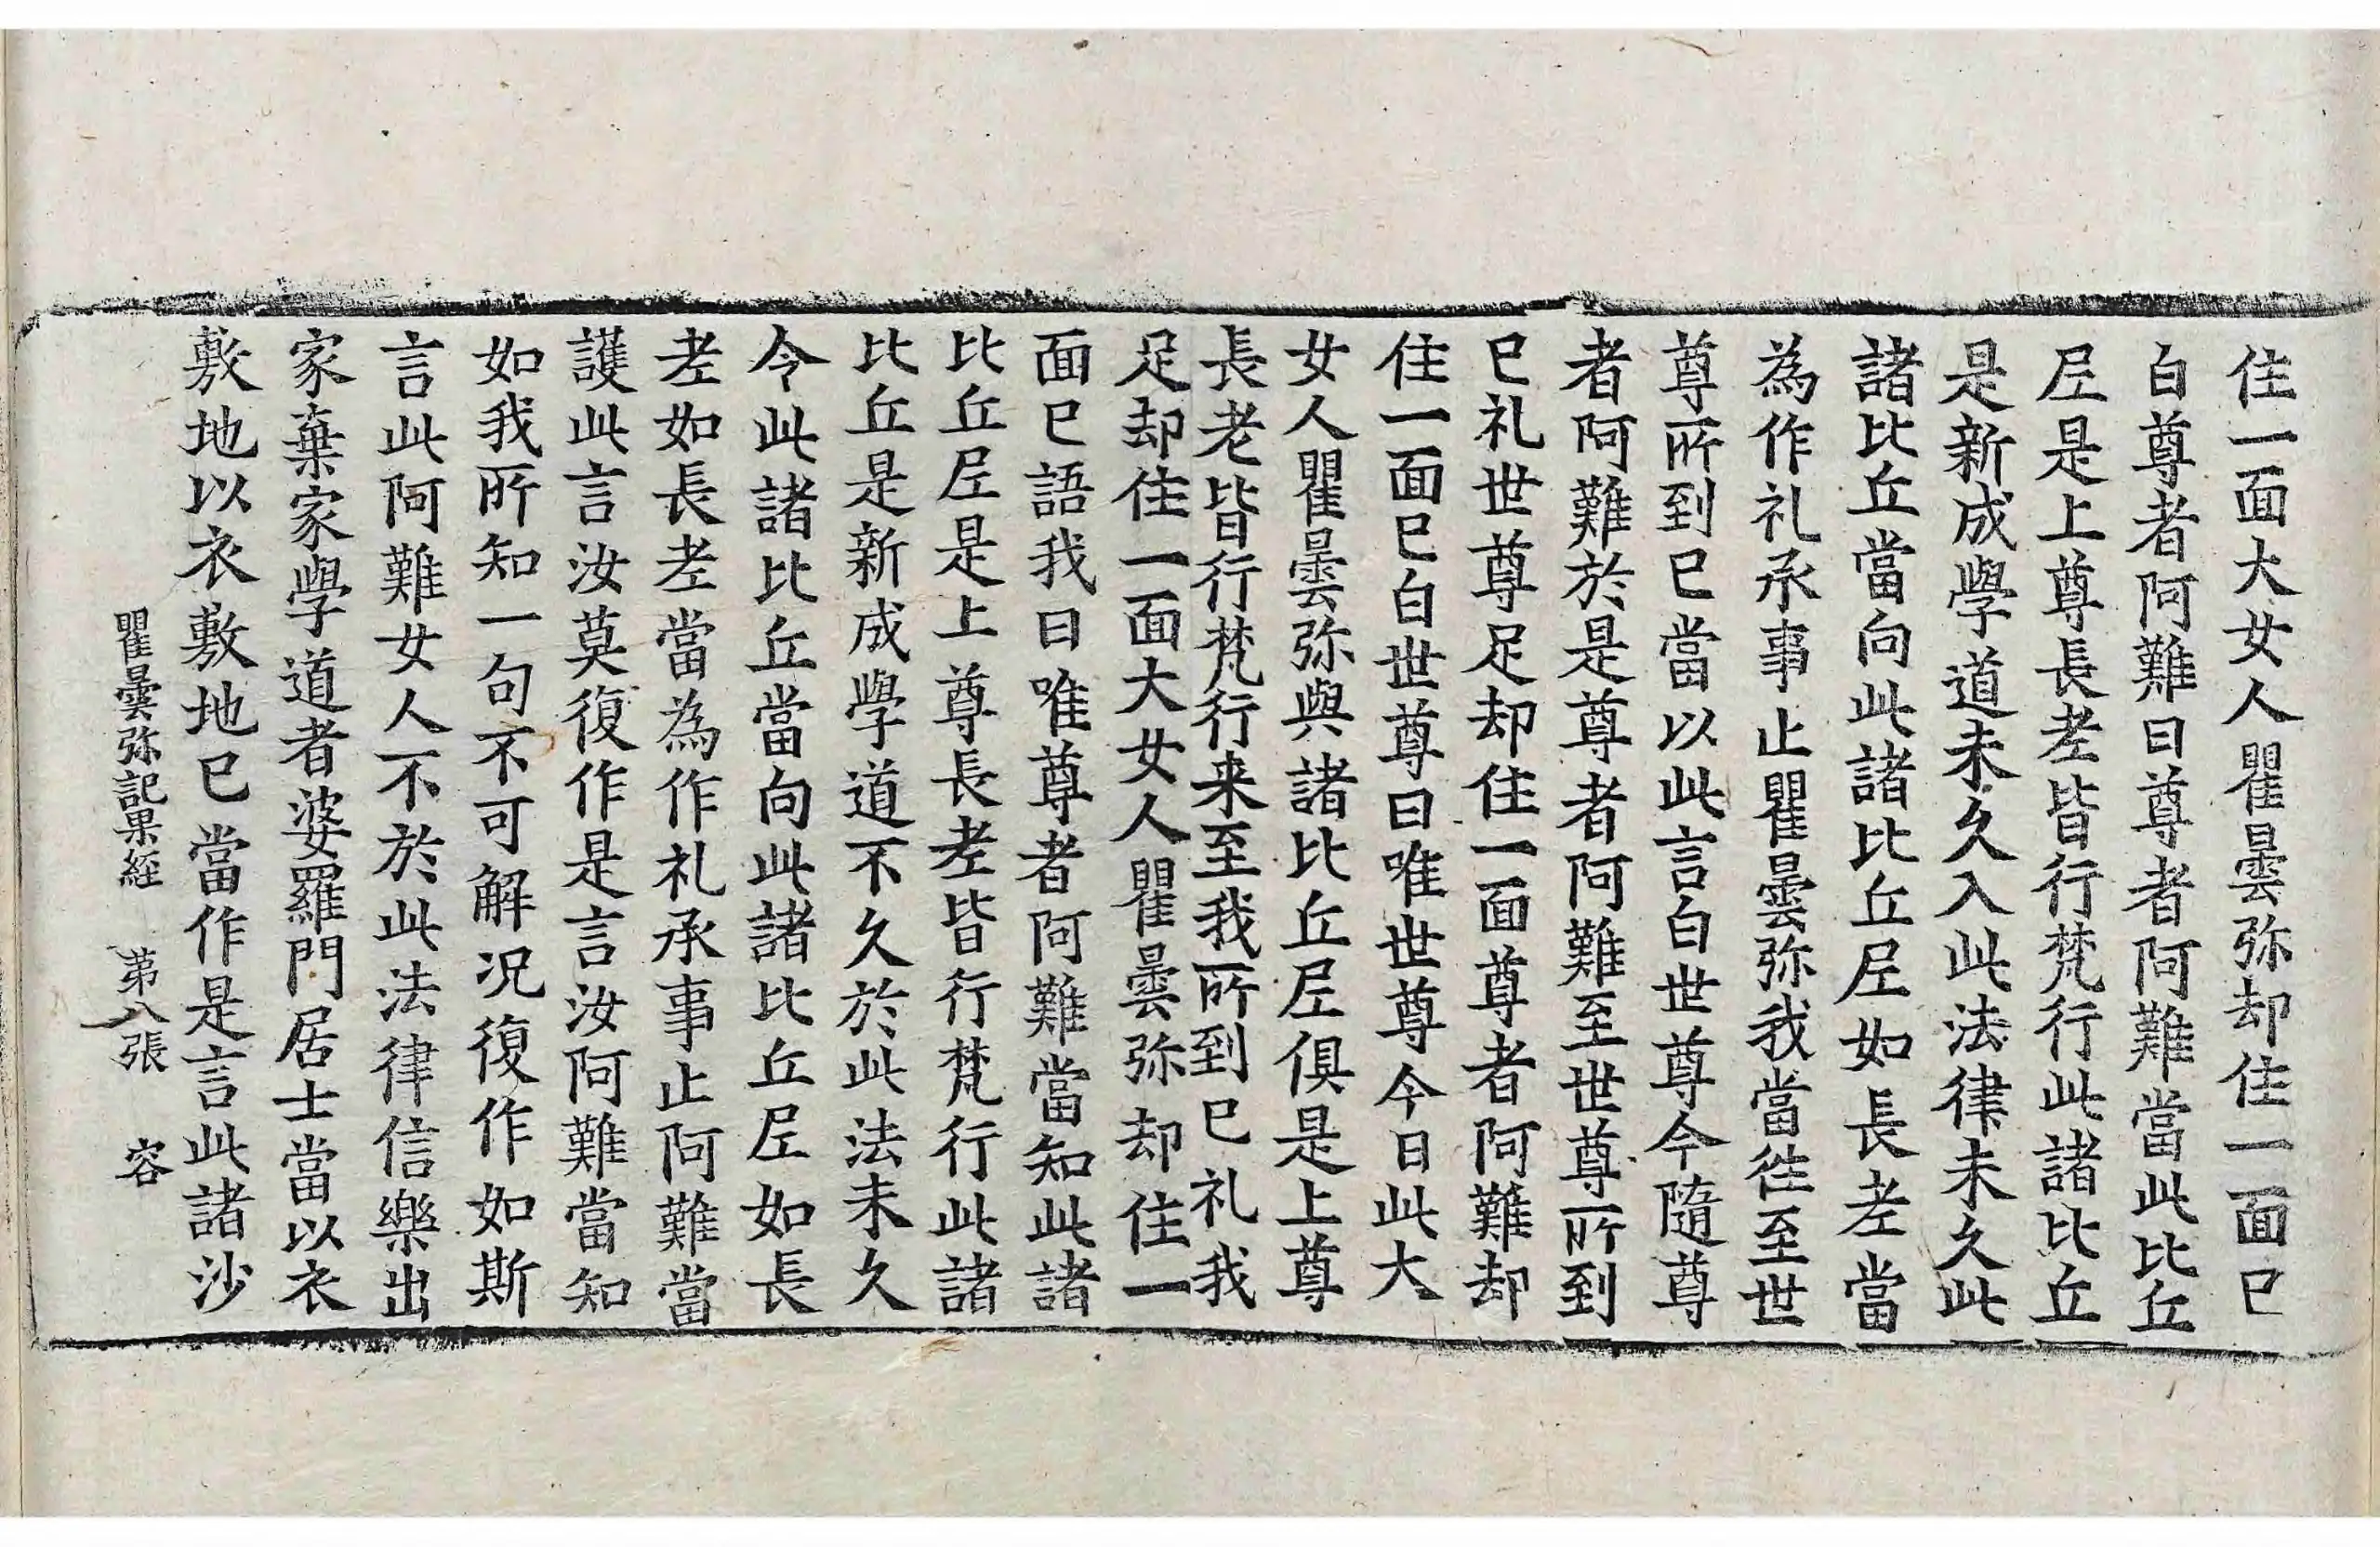 住一面大女人瞿曇弥却住一面已
白尊者阿難曰尊者阿難當此比丘
尼是上尊長老皆行梵行此諸比丘
是新成學道未久入此法律未久此
諸比丘當向此諸比丘尼如長老當
為作礼承事止瞿曇弥我當往至世
尊所到已當以此言白世尊今隨尊
者阿難於是尊者阿難至世尊所到
已礼世尊足却住一面尊者阿難却
住一面已白世尊曰唯世尊今日此大
女人瞿曇弥與諸比丘尼俱是上尊
長老皆行梵行来至我所到已礼我
足却住一面大女人瞿曇弥却住一
面已語我曰唯尊者阿難當知此諸
比丘尼是上尊長老皆行梵行此諸
比丘是新成學道不久於此法未久
令此諸比丘當向此諸比丘尼如長
老如長老當為作礼承事止阿難當
護此言汝莫復作是言汝阿難當知
如我所知一句不可解况復作如斯
言此阿難女人不於此法律信樂出
家棄家學道者婆羅門居士當以衣
敷地以衣敷地已當作是言此諸沙
瞿曇弥記果経　第八張　容